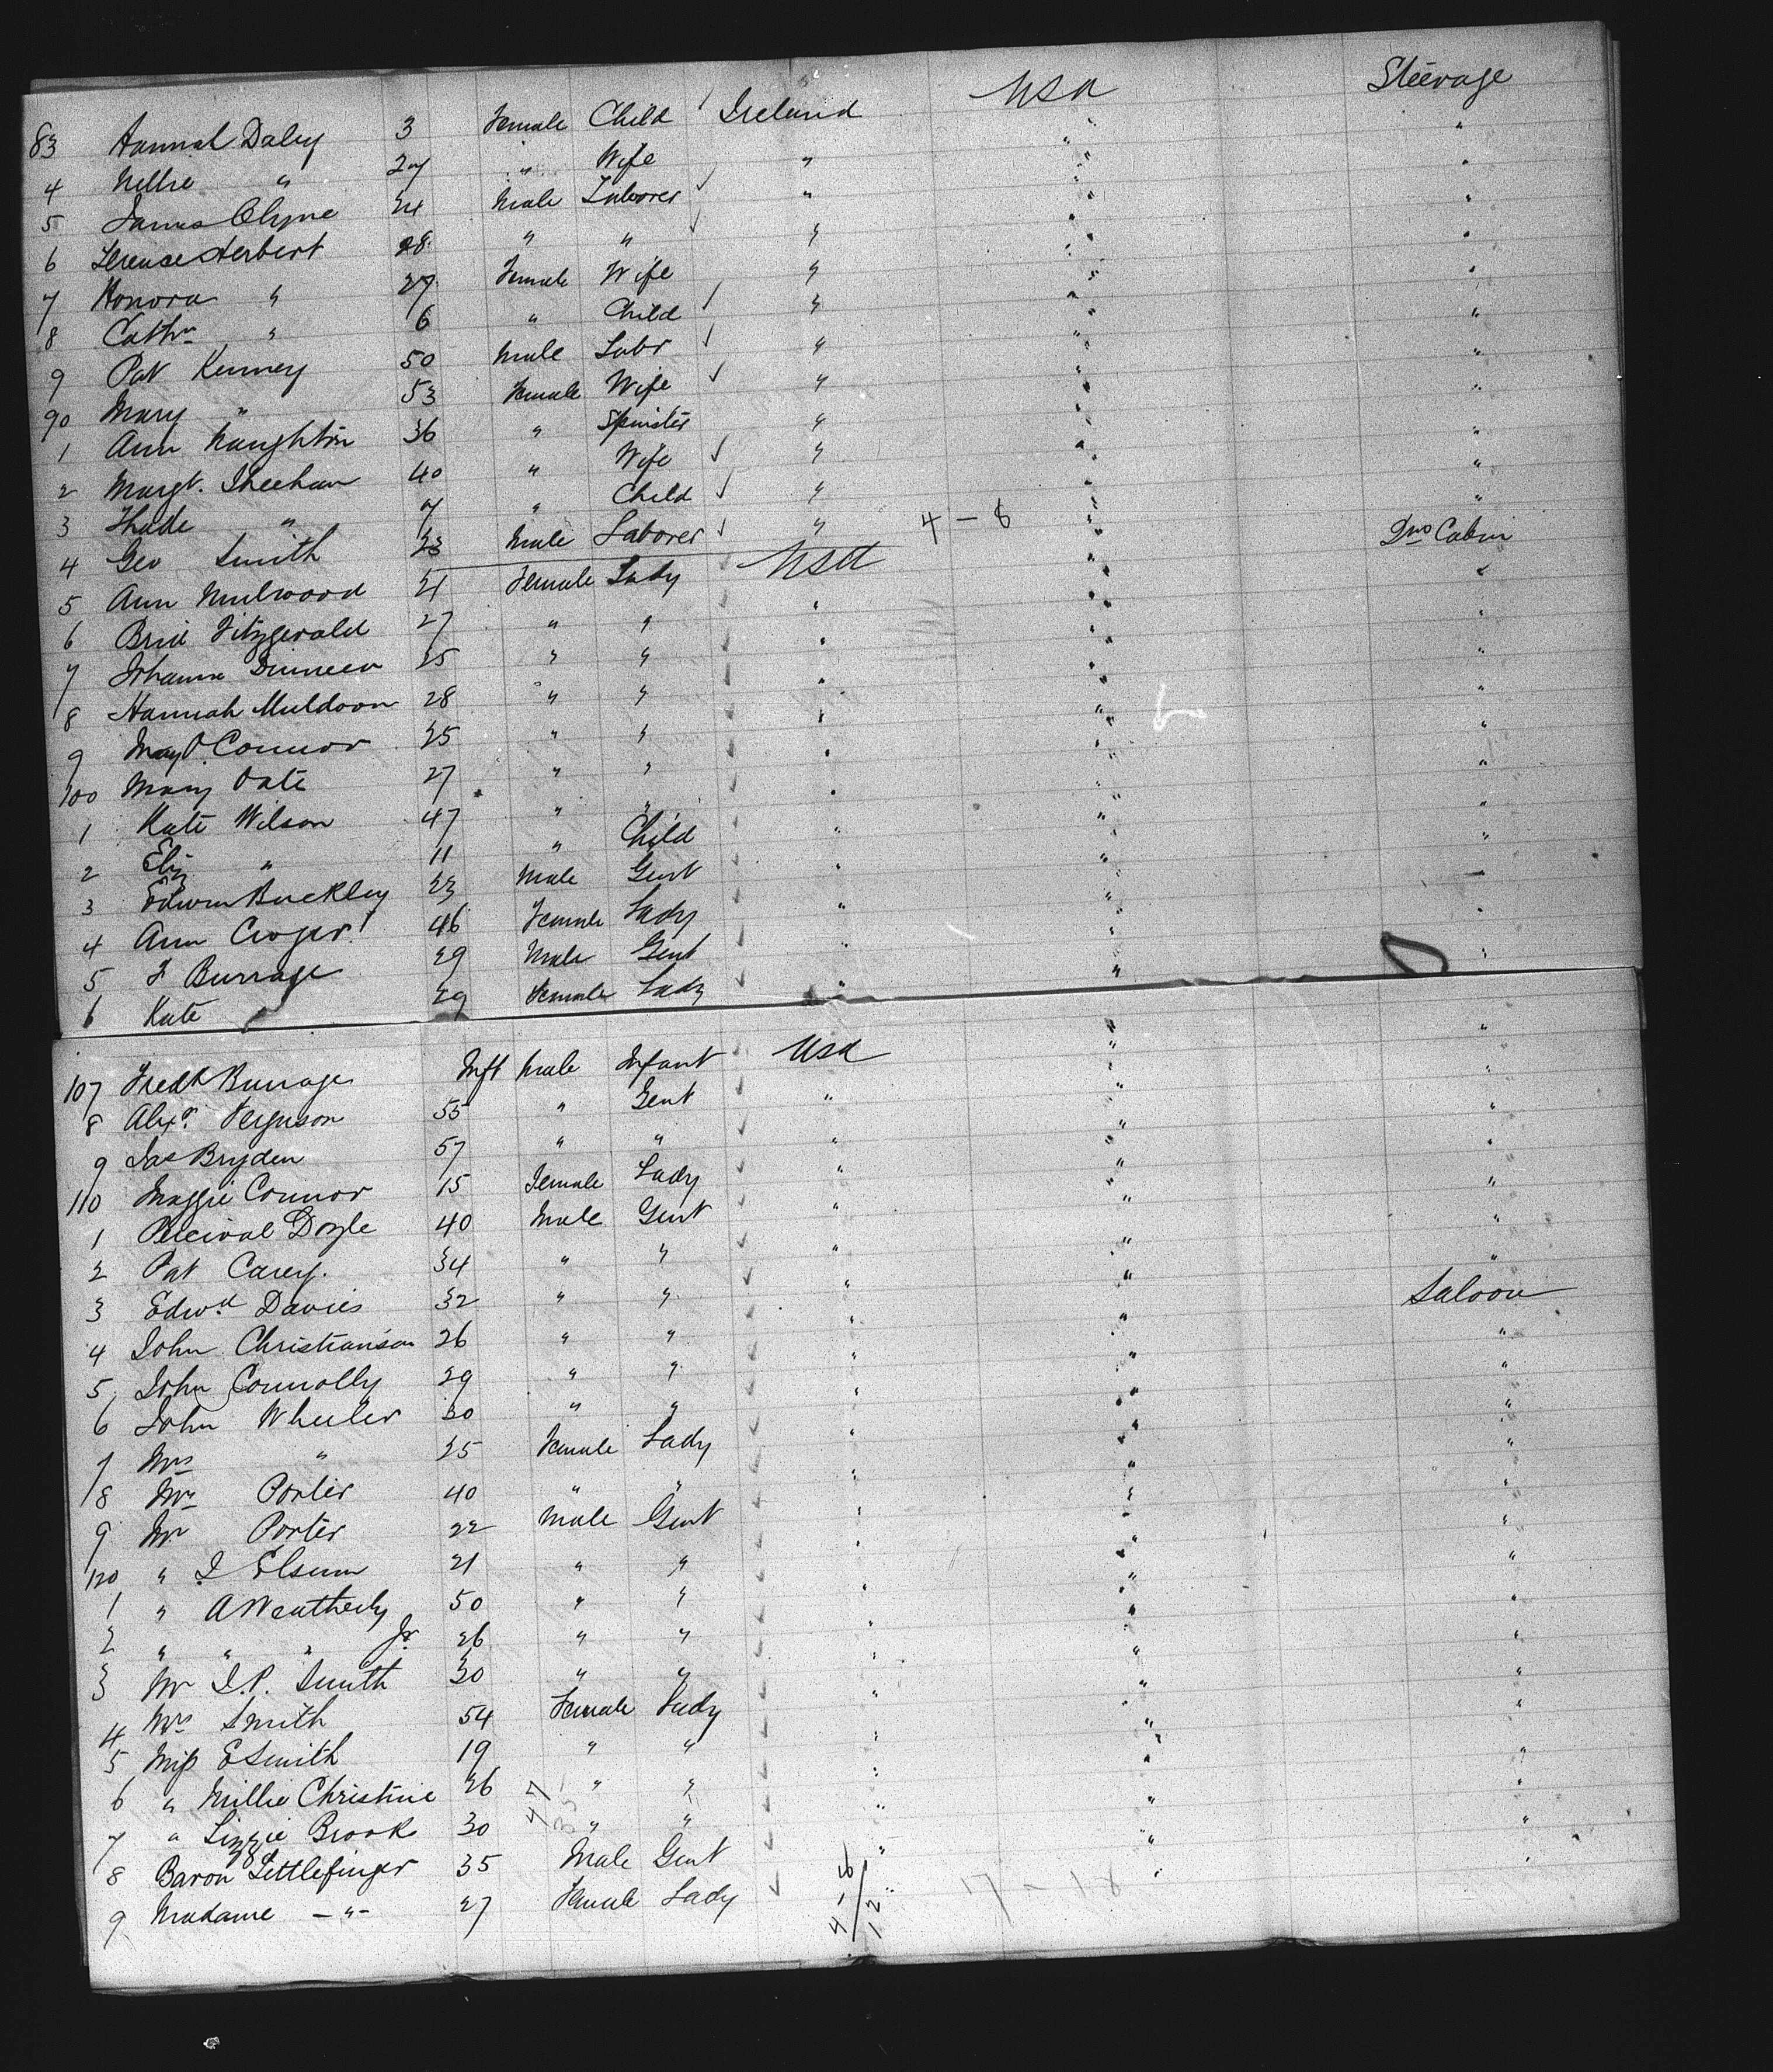 83 Hannah Daley 3 Female Child Ireland USA Steerage
4 Nellie " 27 " Wife " " "
5 James Clyne 24 Male Laborer " " "
6 Terence Herbert 28 " " " " "
7 Honora " 27 Female Wife " " "
8 Cathn " 6 " Child " " "
9 Pat Kenney 50 Male Labr " " "
90 Mary " 53 Female Wife " " "
1 Ann Naughton 36 " Spinster " " "
2 Margt. Sheehan 40 " Wife " " "
3 Thade " 7 " Child " " "
4 Geo Smith 23 Male Laborer " 4 - 8 " "
5 Ann Mulwood 21 Female Lady USA " 2nd Cabin
6 Brid Fitzgerald 27 " " " " "
7 Johanna Dinneen 25 " " " " "
8 Hannah Muldoon 28 " " " " "
9 May O'Connor 25 " " " " "
100 Mary Oate 27 " " " " "
1 Kate Wilson 47 " " " " "
2 Eliz " 11 " Child " " "
3 Edwin Buckley 23 Male Gent " " "
4 Ann Croper 46 Female Lady " " "
5 F Burrage 29 Male Gent " " "
6 Kate 29 Female Lady " " "
107 Fredk Burrage Inft Male Infant USA " "
8 Alexr. Ferguson 55 " Gent " " "
9 Jas Bryden 57 " " " " "
110 Maggie Connor 15 Female Lady " " "
1 Percival Doyle 40 Male Gent " " "
2 Pat Carey. 34 " " " " "
3 Edwd. Davies 32 " " " " Saloon
4 John Christianson 26 " " " " "
5 John Connolly 29 " " " " "
6 John Wheeler 30 " " " " "
7 Mrs " 25 Female Lady " " "
8 Mrs Porter 40 " " " " "
9 Mr Porter 22 Male Gent " " "
120 " J Elsum 21 " " " " "
1 " A Weatherly 50 " " " " "
2 " " " Jr 26 " " " " "
3 Mr J.P. Smith 30 " " " " "
4 Mrs Smith 54 Female Lady " " "
5 Miss E Smith 19 " " " " "
6 " Millie Christine 26 " " " " "
7 " Lizzie Brook 30 " " " " "
8 Baron Littlefinger 35 Male Gent " " "
9 Madame - " - 27 Female Lady " " "
4 - 6
12
17 - 18